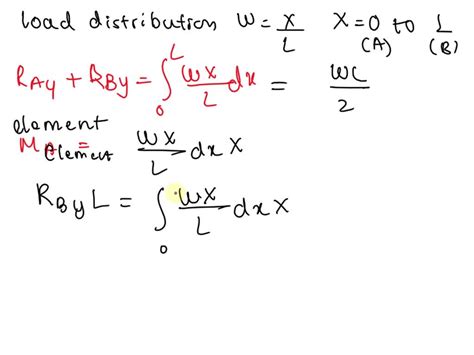 load distribution W = x/L   X=0 to L
(A) (B)
RAy + RBy = ∫₀ᴸ wx/L dx = WL/2
element
MA =
element wx/L dx X
RBy L = ∫₀ wx/L dx X